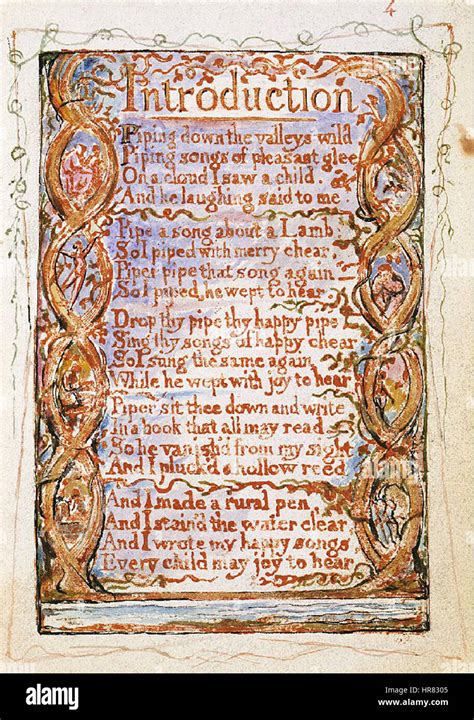 4
Introduction
Piping down the valleys wild
Piping songs of pleasant glee
On a cloud I saw a child.
And he laughing said to me.
Pipe a song about a Lamb:
So I piped with merry chear,
Piper pipe that song again
So I piped, he wept to hear.
Drop thy pipe thy happy pipe
Sing thy songs of happy chear
So I sung the same again
While he wept with joy to hear
Piper sit thee down and write
In a book that all may read
So he vanish'd from my sight
And I pluck'd a hollow reed
And I made a rural pen,
And I stain'd the water clear,
And I wrote my happy songs
Every child may joy to hear
alamy
alamy
alamy
Image ID: HR8305
www.alamy.com